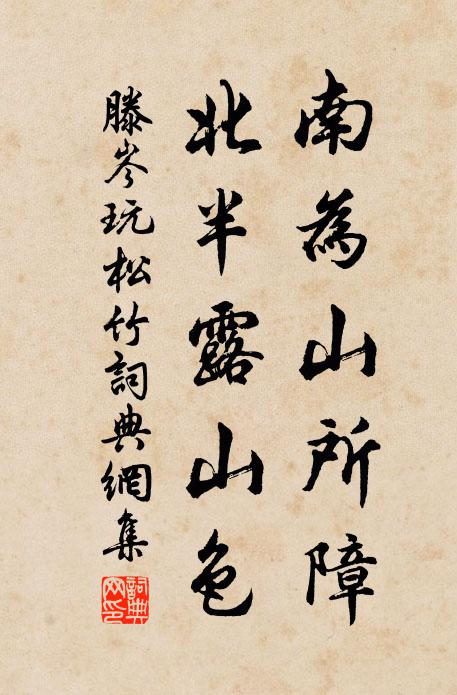 南為山所障
北半露山色
滕岑玩松竹詞典網集
詞典網印